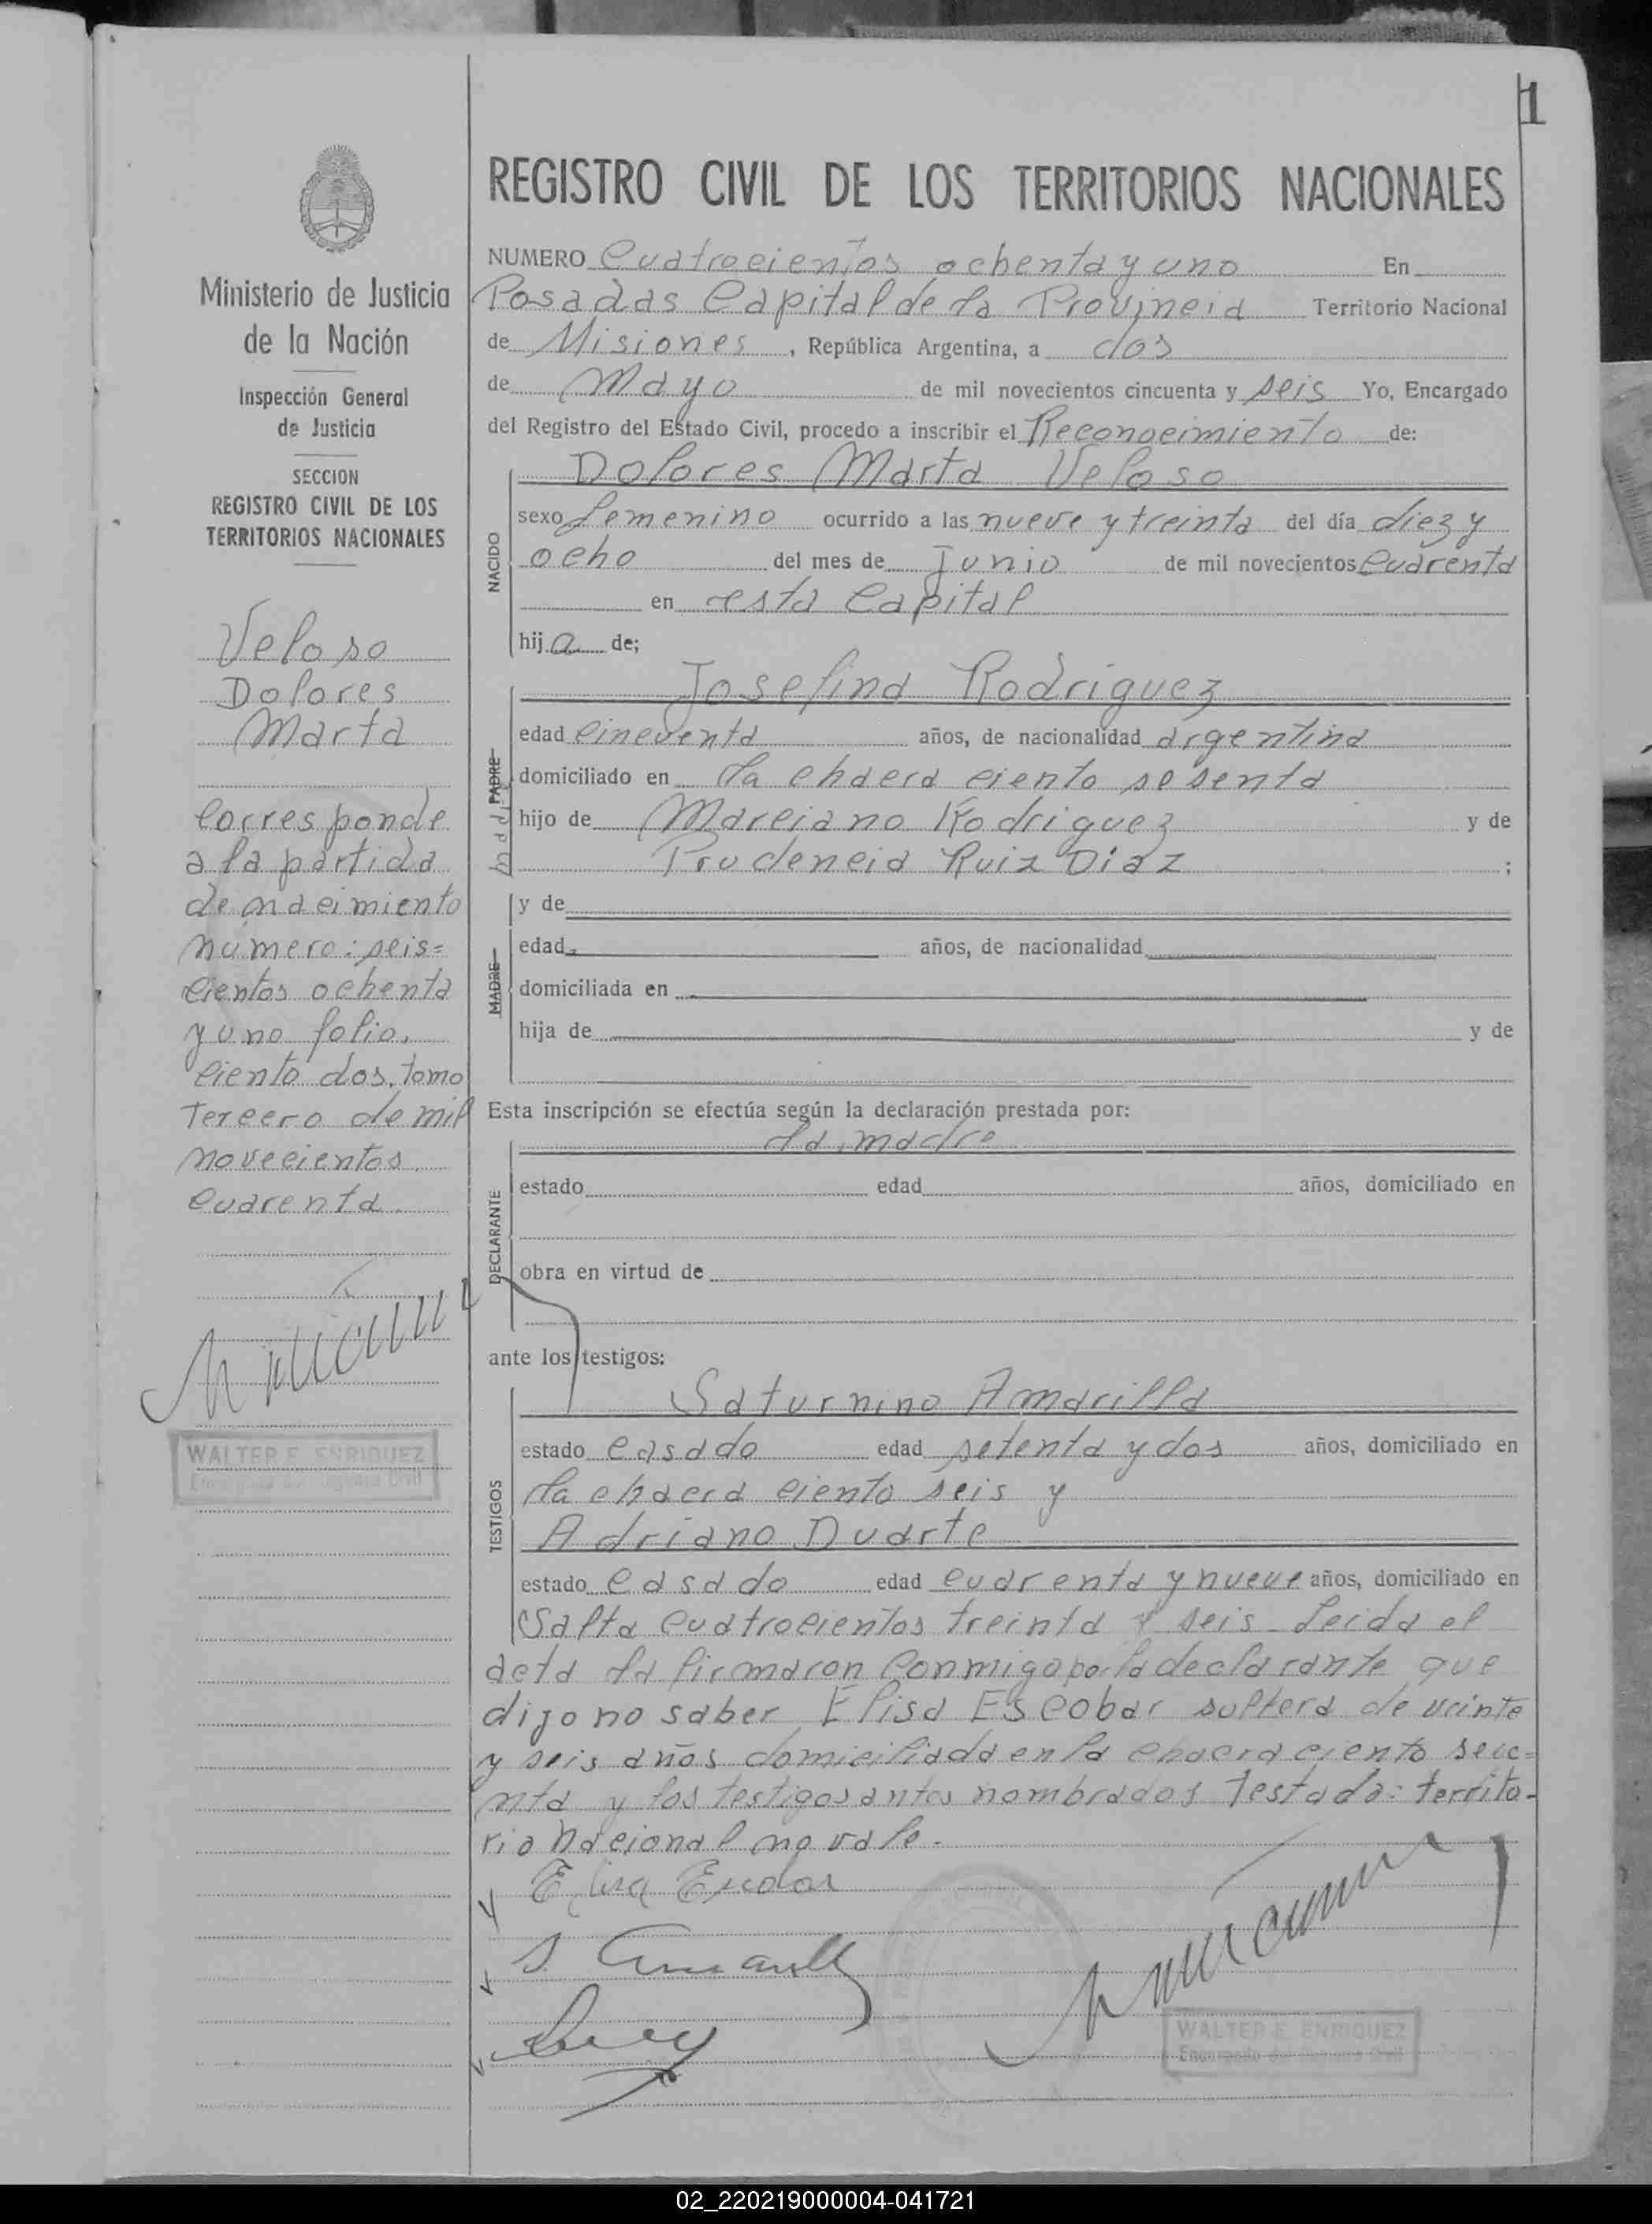 1
REGISTRO CIVIL DE LOS TERRITORIOS NACIONALES
Ministerio de Justicia
de la Nación
Inspección General
de Justicia
SECCION
REGISTRO CIVIL DE LOS
TERRITORIOS NACIONALES
Veloso
Dolores
Marta
Corresponde
a la partida
de nacimiento
número: seis=
cientos ochenta
y uno folio,
ciento dos, tomo
Tercero de mil
novecientos
cuarenta.
WALTER E. ENRIQUEZ
NUMERO Cuatrocientos ochenta y uno En
Posadas Capital de la Provincia Territorio Nacional
de Misiones, República Argentina, a dos
de Mayo de mil novecientos cincuenta y seis Yo, Encargado
del Registro del Estado Civil, procedo a inscribir el Reconocimiento de:
NACIDO
Dolores Marta Veloso
sexo femenino ocurrido a las nueve y treinta del día diez y
ocho del mes de junio de mil novecientos cuarenta
en esta Capital
hija de;
Josefina Rodriguez
PADRE madre
edad cincuenta años, de nacionalidad argentina
domiciliado en la chacra ciento sesenta
hijo de Marciano Rodriguez y de
Prudencia Ruiz Diaz ;
y de
MADRE
edad años, de nacionalidad
domiciliada en
hija de y de
Esta inscripción se efectúa según la declaración prestada por:
la madre
DECLARANTE
estado edad años, domiciliado en
obra en virtud de
ante los testigos:
Saturnino Amarilla
TESTIGOS
estado casado edad setenta y dos años, domiciliado en
la chacra ciento seis y
Adriano Duarte
estado casado edad cuarenta y nueve años, domiciliado en
Salta cuatrocientos treinta y seis. Leida el
acta la firmaron conmigo por la declarante que
dijo no saber Elisa Escobar soltera de veinte
y seis años domiciliada en la chacra ciento sese=
nta y los testigos antes nombrados Testado: territo-
rio Nacional no vale.
Elisa Escobar
S. Amarilla
WALTER E. ENRIQUEZ
Encargado del Registro Civil
02_220219000004-041721